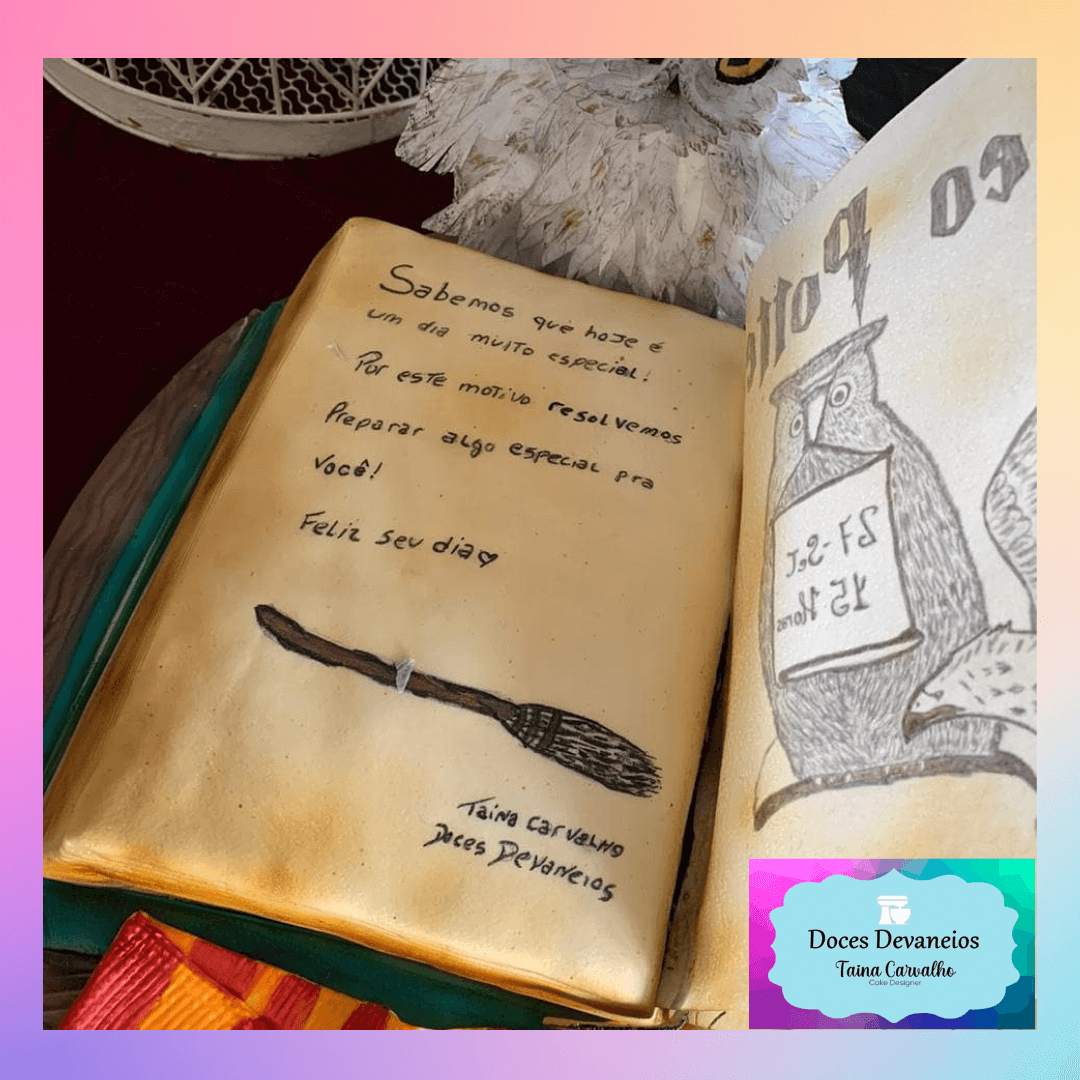 Sabemos que hoje é
um dia muito especial!
Por este motivo resolvemos
Preparar algo especial pra
você!
Feliz seu dia♥
Taina Carvalho
Doces Devaneios
co Potte
27-Set
15 Horas
Doces Devaneios
Taina Carvalho
Cake Designer